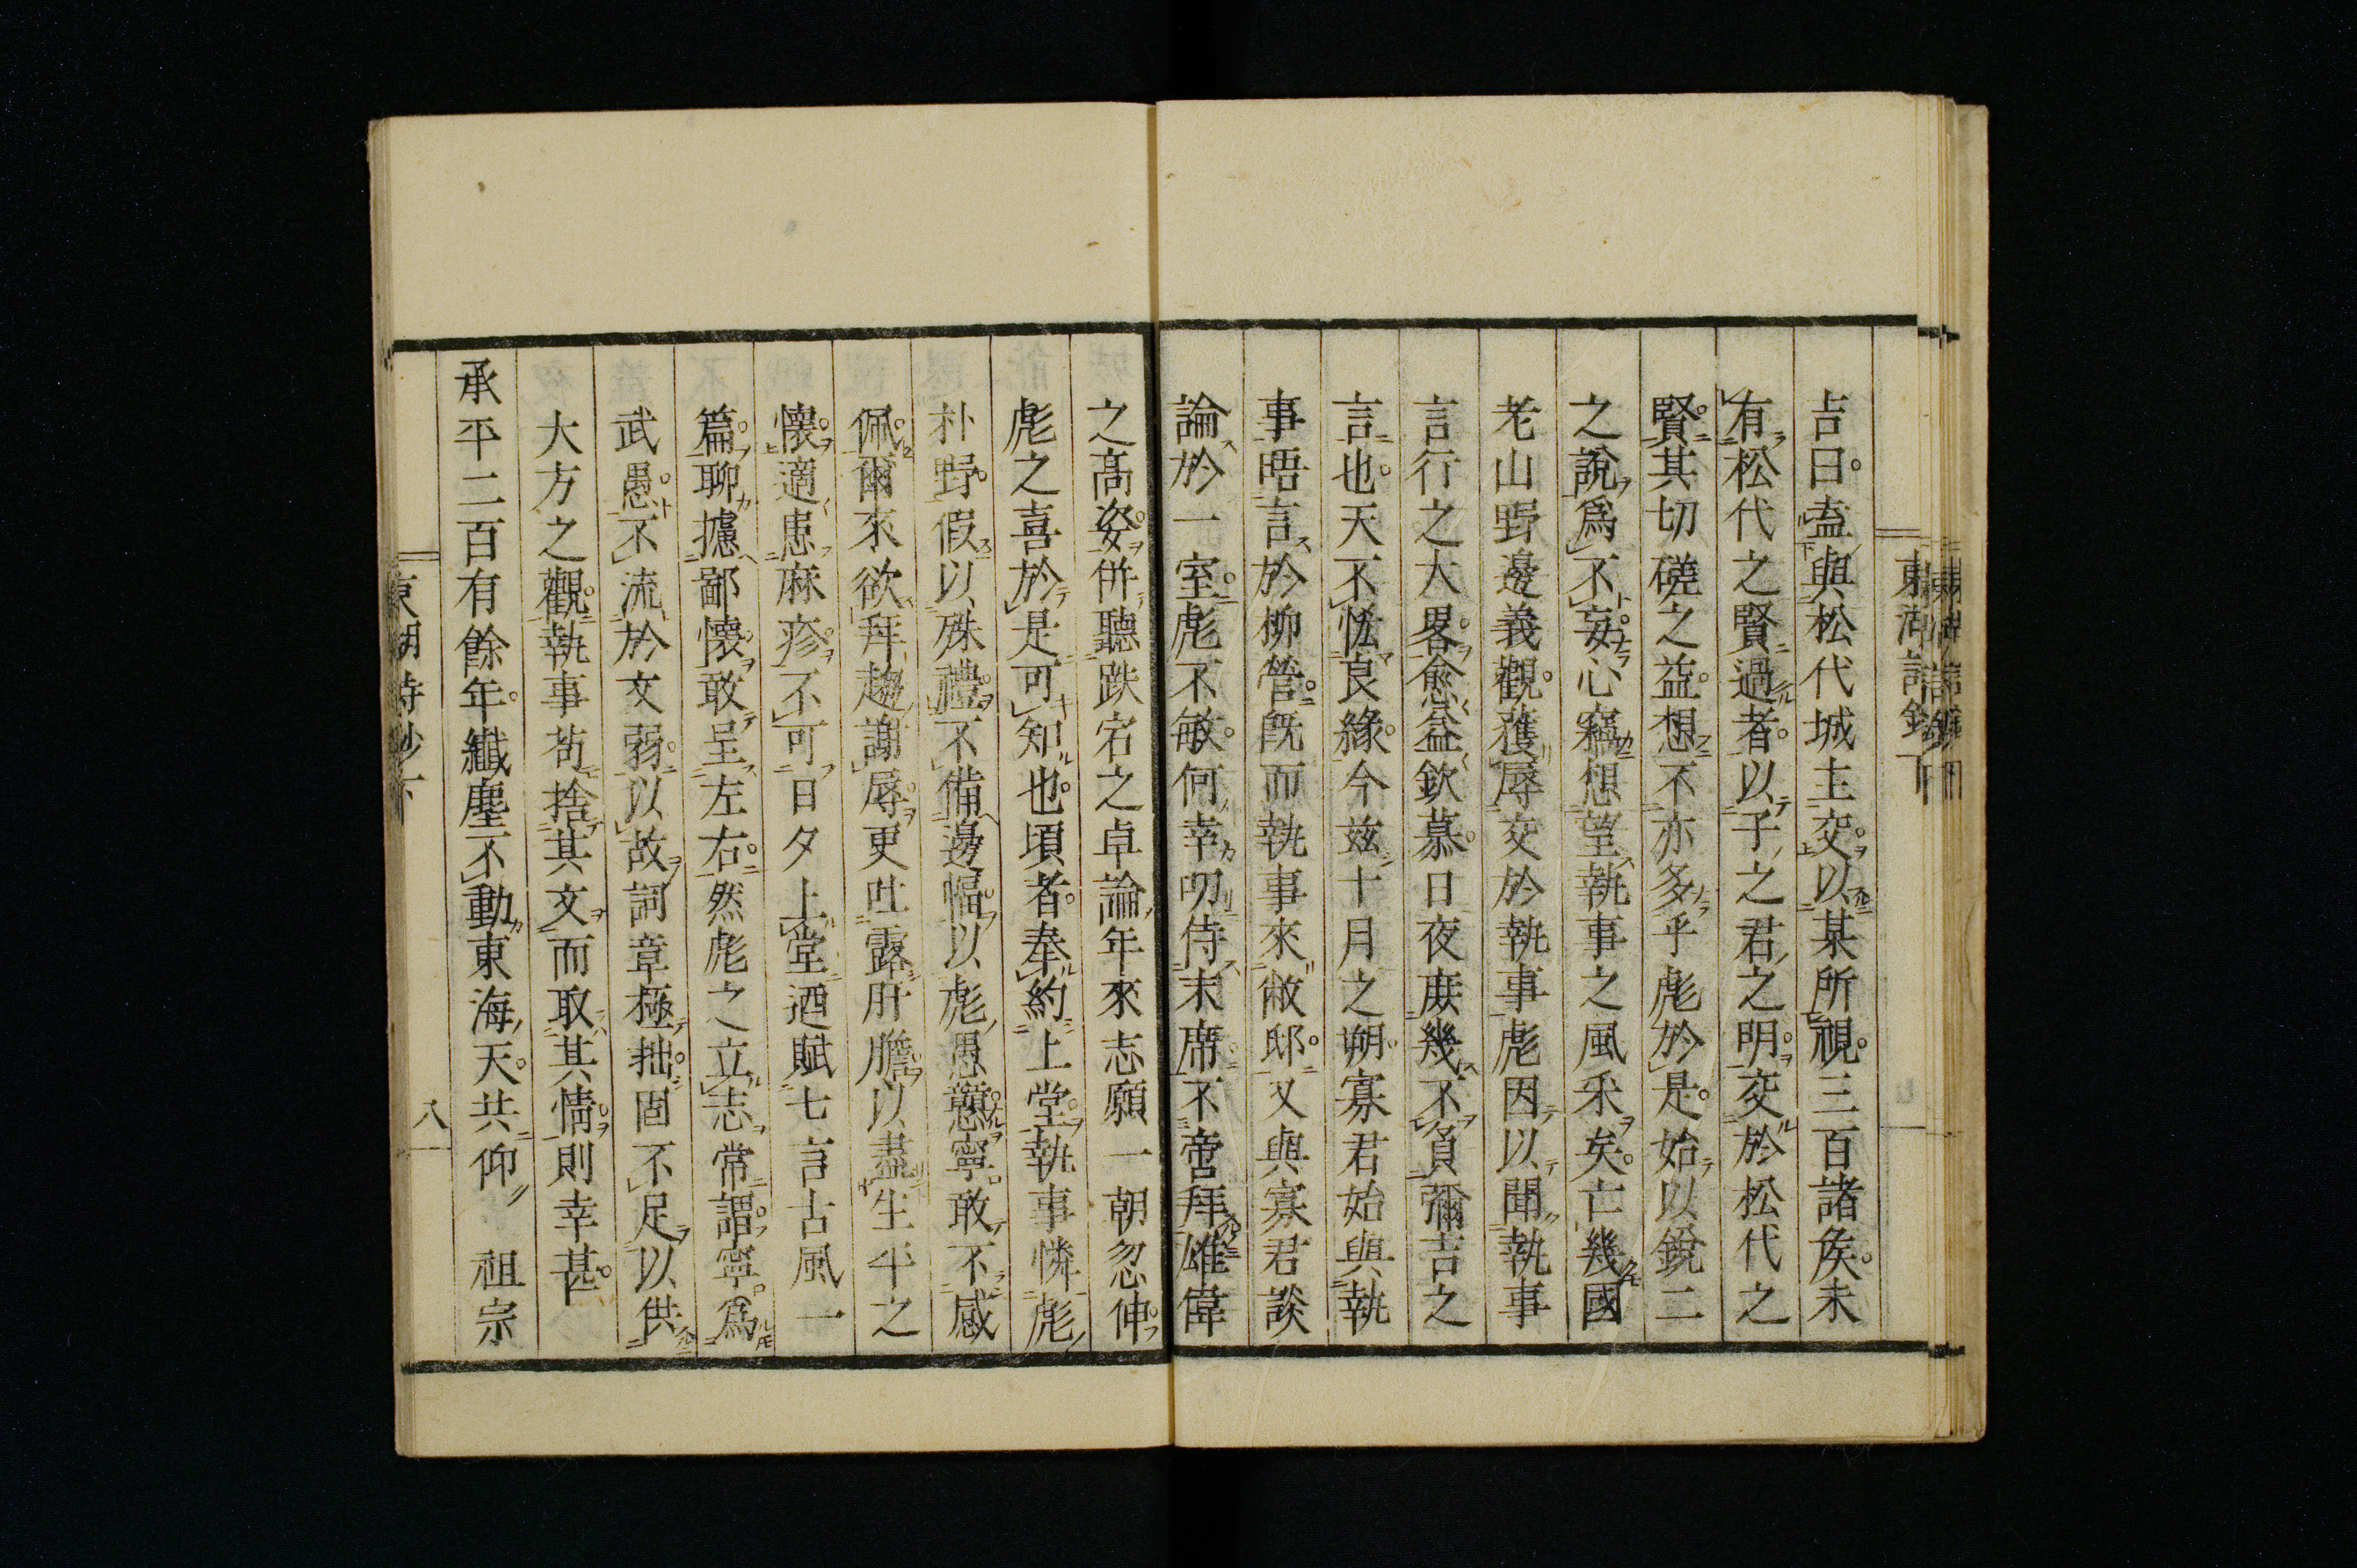 東湖詩鈔下
吉曰盍與松代城主交以某所視三百諸矦未
有松代之賢過者以子之君之明交於松代之
賢其切磋之益想不亦多乎彪於是始以銳二
之說爲不妄心竊想望執事之風采矣亡幾國
老山野邊義觀獲辱交於執事彪因以聞執事
言行之大畧愈益欽慕日夜庶幾不負彌吉之
言也天不慳良緣今玆十月之朔寡君始與執
事晤言於柳營旣而執事來敝邸又與寡君談
論於一室彪不敏何幸叨侍末席不啻拜雄偉
之髙姿併聽跌宕之卓論年來志願一朝忽伸
彪之喜於是可知也頃者奉約上堂執事憐彪
朴野假以殊禮不備邊幅以彪愚戇寧敢不感
佩爾來欲拜趨謝辱更吐露肝膽以盡生平之
懷適患麻疹不可日夕上堂迺賦七言古風一
篇聊攄鄙懷敢呈左右然彪之立志常謂寧爲
武愚不流於文弱以故詞章極拙固不足以供
大方之觀執事苟捨其文而取其情則幸甚
承平二百有餘年纖塵不動東海天共仰 祖宗
東湖詩鈔下
八